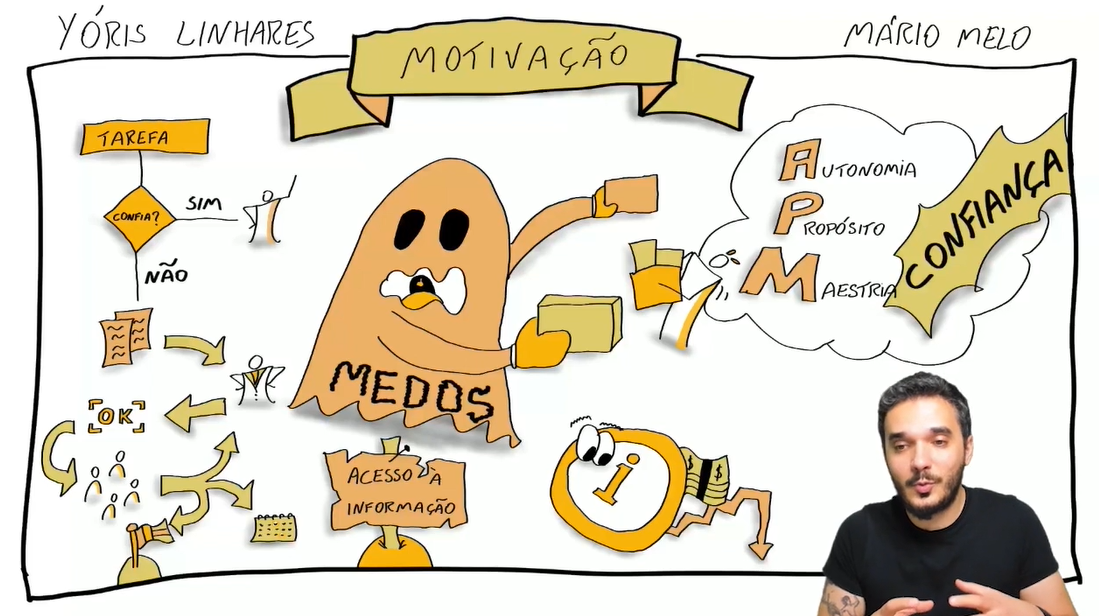 YÓRIS LINHARES
MOTIVAÇÃO
MÁRIO MELO
TAREFA
CONFIA?
SIM
NÃO
OK
MEDOS
ACESSO À
INFORMAÇÃO
i
$ $
AUTONOMIA
PROPÓSITO
MAESTRIA
CONFIANÇA